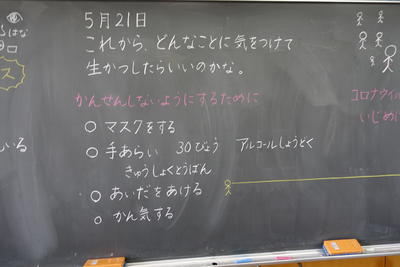 5月21日
これから、どんなことに気をつけて
生かつしたらいいのかな。
かんせんしないようにするために
○ マスクをする
○ 手あらい 30びょう アルコールしょうどく
きゅうしょくとうばん
○ あいだをあける
○ かん気する
はな
ス
いる
コロナウイ
いじめ